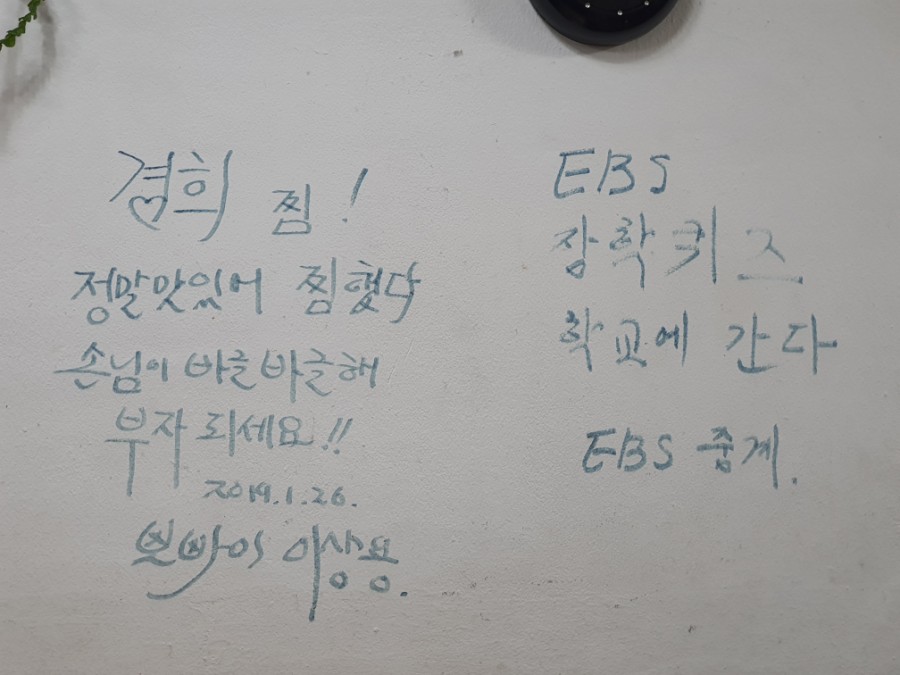 경희 찜!
정말맛있어 찜했다
손님이 바글바글해
부자 되세요!!
2019.1.26.
뽀빠이 이상용.
EBS
장학퀴즈
학교에 간다
EBS 중계.